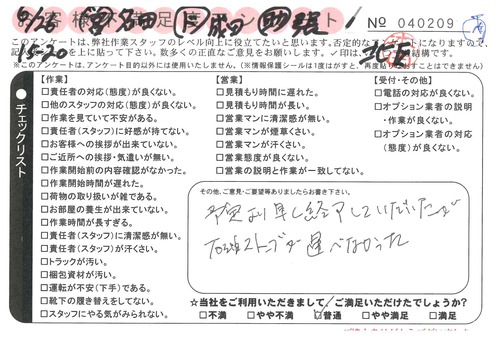 8/25
お客様満足度アンケート
№ 040209
15-20
このアンケートは、弊社作業スタッフのレベル向上に役立てたいと思います。否定的な
記入
に上に貼って下さい。数多くの正直なご意見をお願いします。✓印は
※このアンケートは、アンケート目的以外には使用いたしません。(※情報保護シールは1度はがすと、再度貼りなおすことはできません)
チェックリスト
【作業】
□責任者の対応(態度)が良くない。
□他のスタッフの対応(態度)が良くない。
□作業を見ていて不安がある。
□責任者(スタッフ)に好感が持てない。
□お客様への挨拶が出来ていない。
□ご近所への挨拶・気遣いが無い。
□作業開始前の内容確認がなかった。
□作業開始時間が遅れた。
□荷物の取り扱いが雑である。
□お部屋の養生が出来ていない。
□作業時間が長すぎる。
□責任者(スタッフ)に清潔感が無い。
□責任者(スタッフ)が汗くさい。
□トラックが汚い。
□梱包資材が汚い。
□運転が不安(下手)である。
□靴下の履き替えをしてない。
□スタッフにやる気がみられない。
【営業】
□見積もり時間に遅れた。
□見積もり時間が長い。
□営業マンに清潔感が無い。
□営業マンが煙草くさい。
□営業マンが汗くさい。
□営業態度が良くない。
□営業の説明と作業が一致してない。
【受付・その他】
□電話の対応が良くない。
□オプション業者の説明
・作業が良くない。
□オプション業者の対応
(態度)が良くない。
その他、ご意見・ご要望等ありましたらお書き下さい。
予定より早く終了していただいたが
石油ストーブが運べなかった
☆当社をご利用いただきまして／ご満足いただけたでしょうか?
□不満 □やや不満 ☑普通 □やや満足 □満足